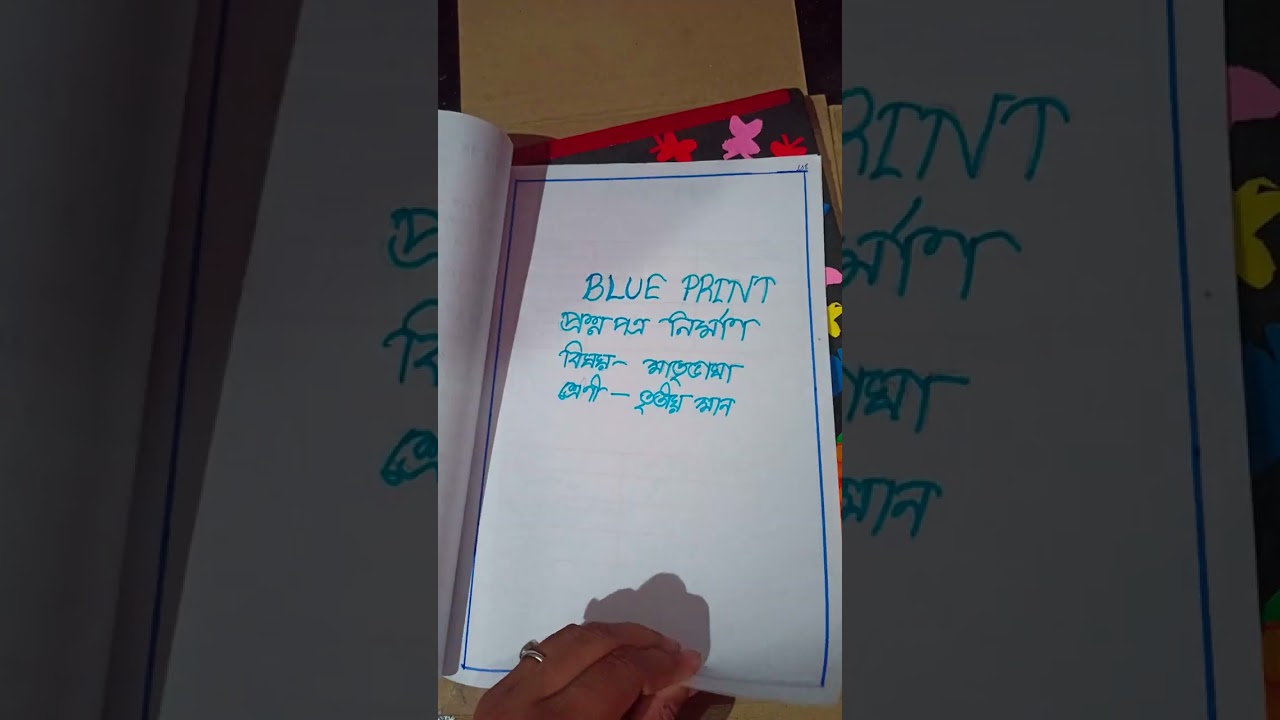 BLUE PRINT
প্রশ্নপত্র নির্মাণ
বিষয়- মাতৃভাষা
শ্রেণী - তৃতীয় মান